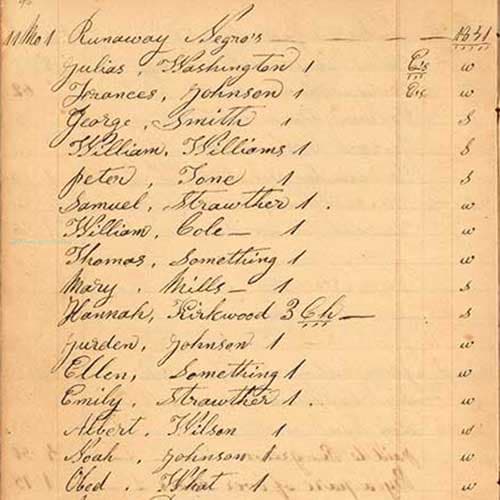 11 Mo 1 Runaway Negro's — 1831
Julias, Washington 1 Cs w
Frances, Johnson 1 Cs w
George, Smith 1 s
William, Williams 1 s
peter, Tone 1 s
Samuel, Strawther 1. w
William, Cole — 1 w
Thomas, Something 1 w
Mary, Mills — 1 s
Hannah, Kirkwood 3 Ch — s
Jurden, Johnson 1 w
Ellen, Something 1 w
Emily, Strawther 1. w
Albert, Wilson 1 w
Noah, Johnson 1 w
Obed, What 1 w